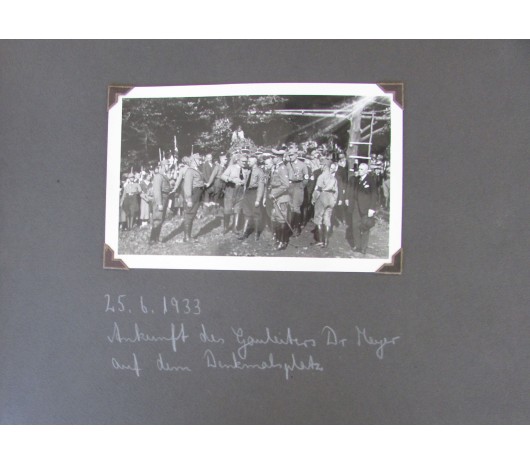 25. 6. 1933
Ankunft des Gauleiters Dr Meyer
auf dem Denkmalsplatz